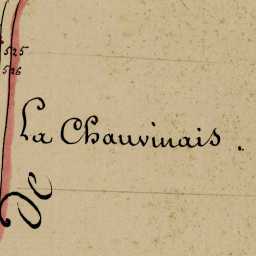 525
526
La Chauvinais.
De